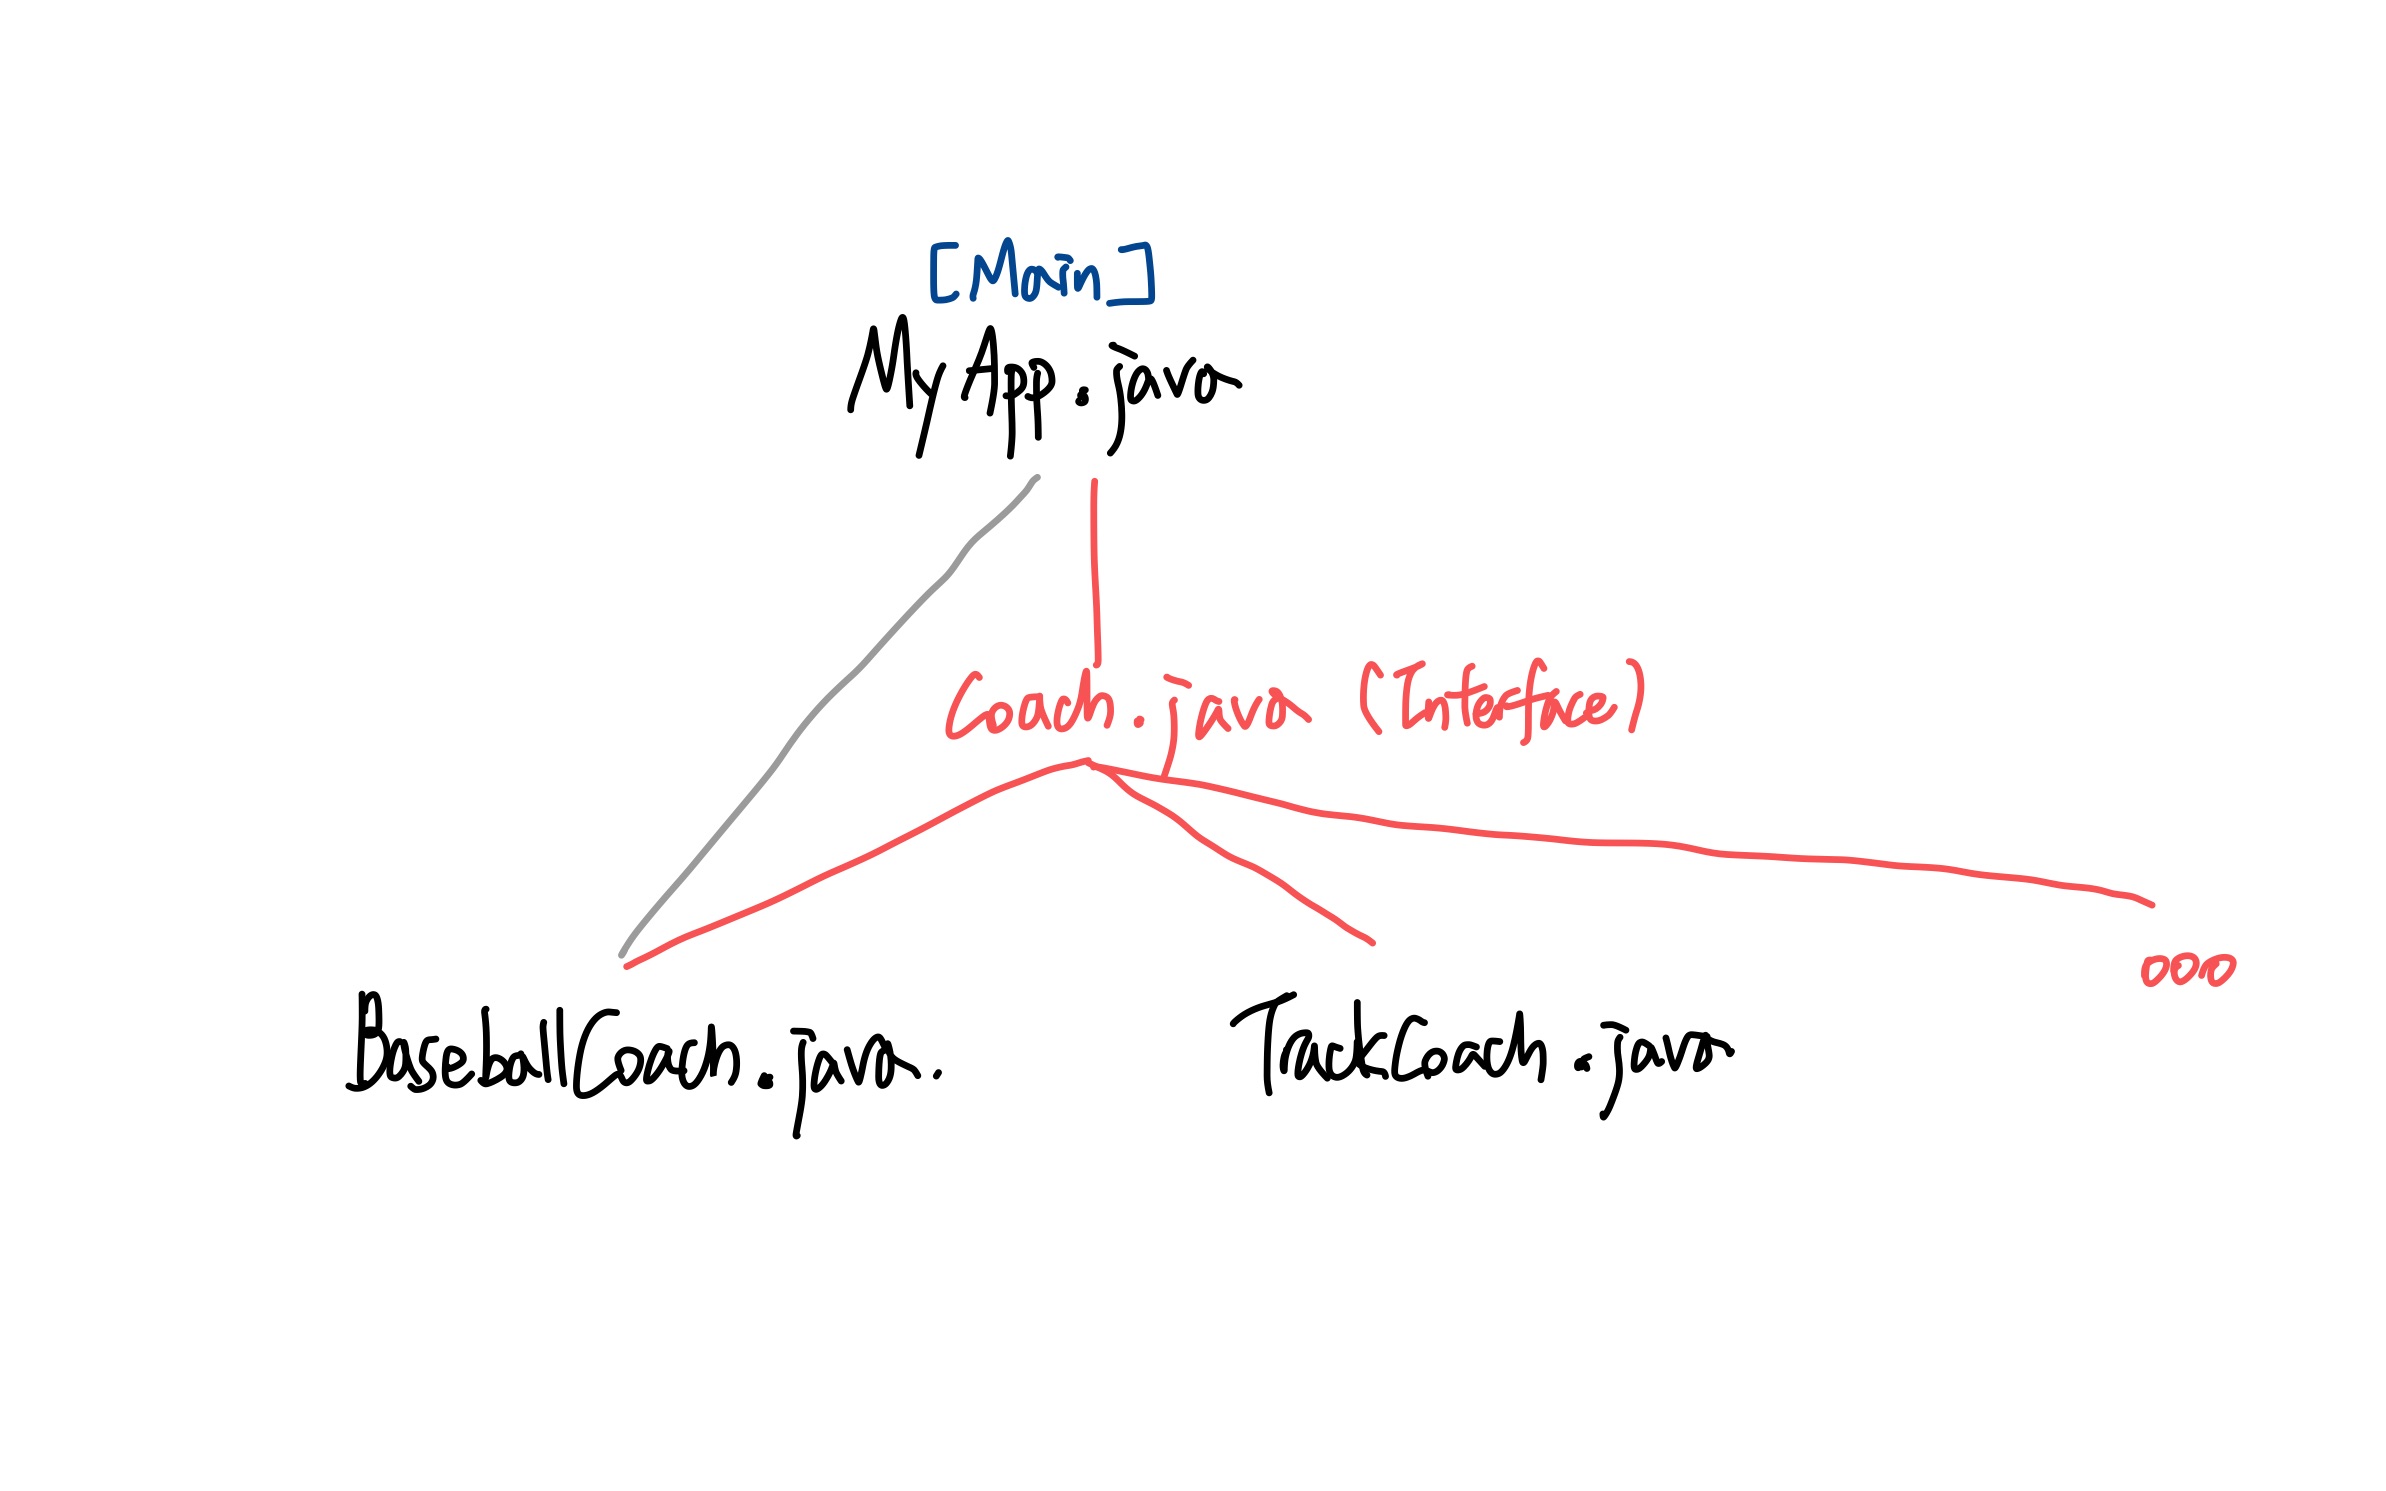 [Main]
MyApp.java
Coach.java (Interface)
BaseballCoach.java.
TrackCoach.java
ooo